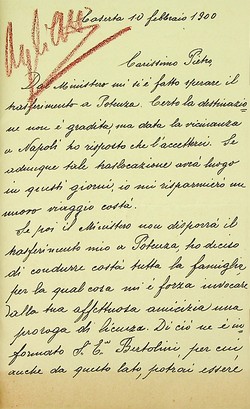 Caserta 10 febbraio 1900
Carissimo Pietro,
Dal Ministero mi si è fatto sperare il
trasferimento a Potenza. Certo la destinazio
ne non è gradita, ma data la vicinanza
a Napoli ho risposto che l'accetterei. Se
adunque tale traslocazione avrà luogo
in questi giorni, io mi risparmierò un
nuovo viaggio costà.
Se poi il Ministero non disporrà il
trasferimento mio a Potenza, ho deciso
di condurre costà tutta la famiglia
per la qual cosa mi è forza invocare
dalla tua affettuosa amicizia una
proroga di licenza. Di ciò ne è in
formato S. E. Bertolini, per cui
anche da questo lato, potrai essere